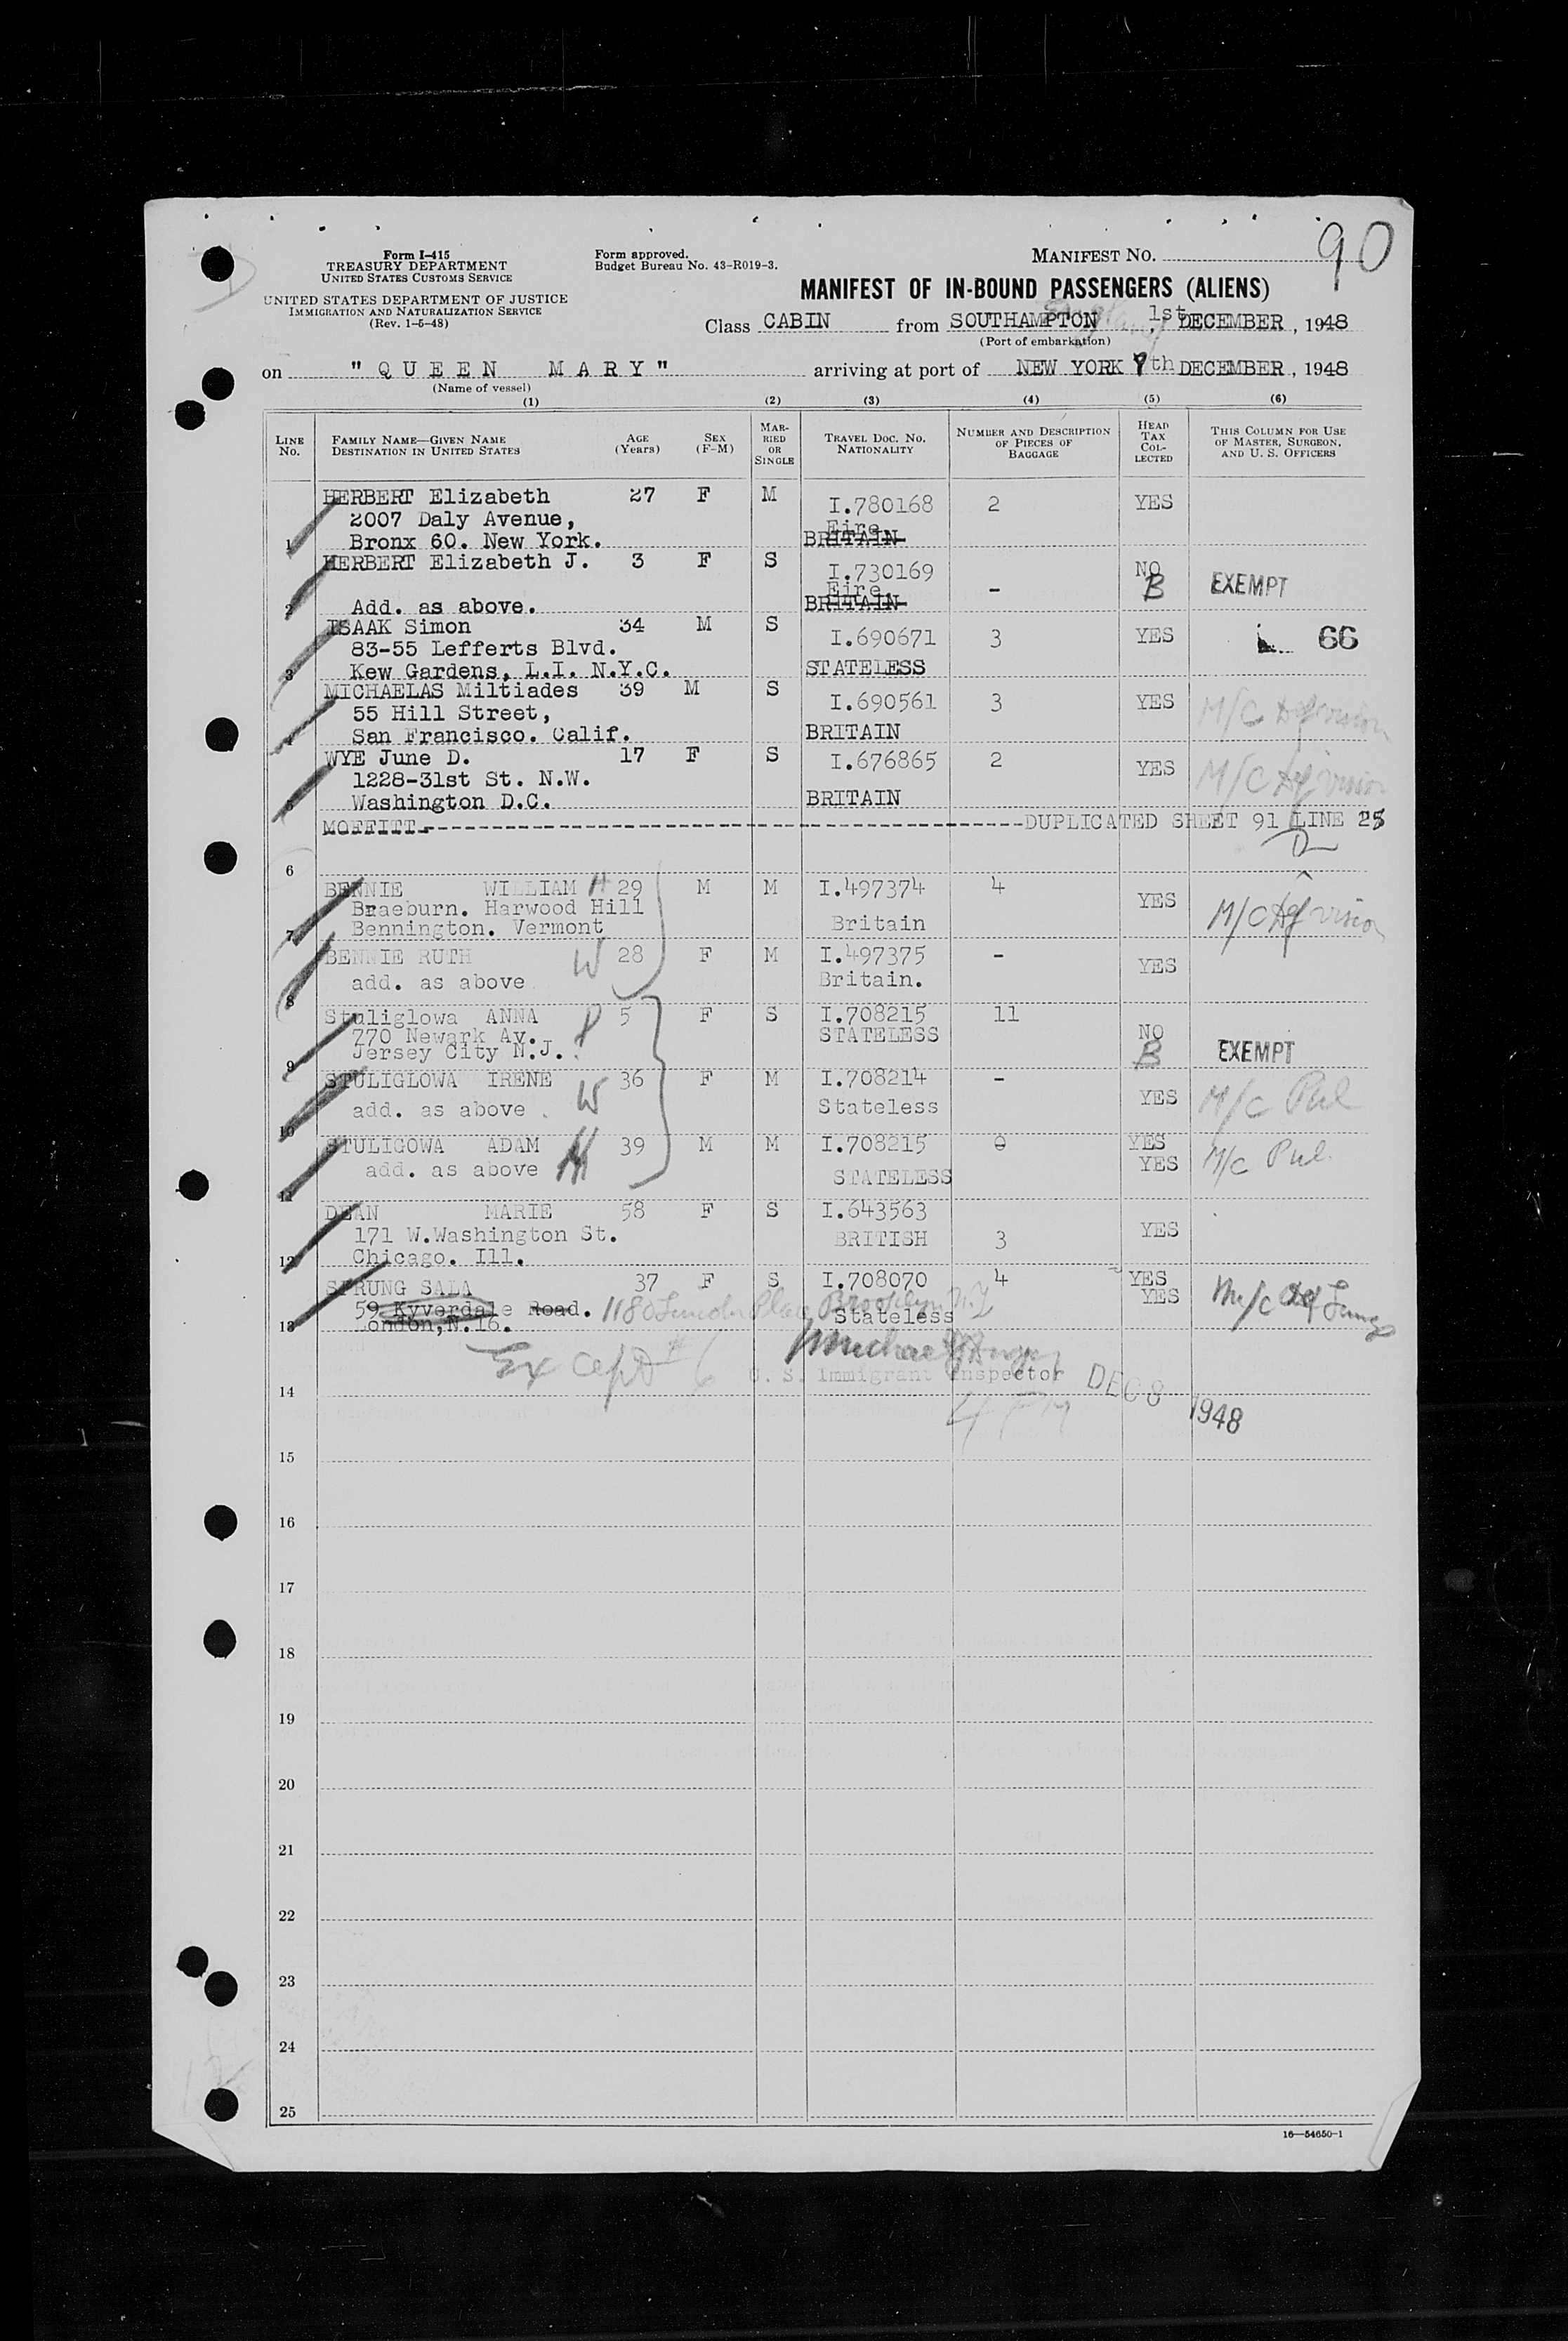 90
Form I-415
TREASURY DEPARTMENT
UNITED STATES CUSTOMS SERVICE
UNITED STATES DEPARTMENT OF JUSTICE
IMMIGRATION AND NATURALIZATION SERVICE
(Rev. 1-5-48)
Form approved.
Budget Bureau No. 43-R019-3.
MANIFEST NO.
MANIFEST OF IN-BOUND PASSENGERS (ALIENS)
Class CABIN from SOUTHAMPTON, 1st DECEMBER, 1948
(Port of embarkation)
on "QUEEN MARY" arriving at port of NEW YORK th DECEMBER, 1948
(Name of vessel)
(1) (2) (3) (4) (5) (6)
LINE No.
FAMILY NAME—GIVEN NAME
DESTINATION IN UNITED STATES
AGE (Years)
SEX (F-M)
MARRIED OR SINGLE
TRAVEL DOC. NO. NATIONALITY
NUMBER AND DESCRIPTION OF PIECES OF BAGGAGE
HEAD TAX COLLECTED
THIS COLUMN FOR USE OF MASTER, SURGEON, AND U. S. OFFICERS
HERBERT Elizabeth 27 F M I.780168 2 YES
2007 Daly Avenue, Eire
1 Bronx 60. New York. BRITAIN
HERBERT Elizabeth J. 3 F S I.730169 - NO B EXEMPT
Eire
2 Add. as above. BRITAIN
ISAAK Simon 34 M S I.690671 3 YES 66
83-55 Lefferts Blvd.
3 Kew Gardens, L.I. N.Y.C. STATELESS
MICHAELAS Miltiades 39 M S I.690561 3 YES M/C
55 Hill Street,
4 San Francisco. Calif. BRITAIN
WYE June D. 17 F S I.676865 2 YES M/C
1228-31st St. N.W.
5 Washington D.C. BRITAIN
MOFFITT------DUPLICATED SHEET 91 LINE 25
6
BENNIE WILLIAM H 29 M M I.497374 4 YES
Braeburn. Harwood Hill M/C Def vision
7 Bennington. Vermont Britain
BENNIE RUTH W 28 F M I.497375 - YES
8 add. as above Britain.
Stuliglowa ANNA 5 F S I.708215 11
770 Newark Av. STATELESS NO
9 Jersey City N.J. B EXEMPT
STULIGLOWA IRENE W 36 F M I.708214 - YES M/C
10 add. as above. Stateless
STULIGOWA ADAM H 39 M M I.708215 0 YES
11 add. as above STATELESS YES M/C
DEAN MARIE 58 F S I.643563
171 W.Washington St. BRITISH 3 YES
12 Chicago. Ill.
SPRUNG SALA 37 F S I.708070 4 YES
59 Kyverdale Road. 1180 Lincoln Place Brooklyn N.Y. Stateless YES M/C
13 London,N.16.
Except # 6
U. S. Immigrant Inspector DEC 8 1948
14
15
16
17
18
19
20
21
22
23
24
25
16—54650-1